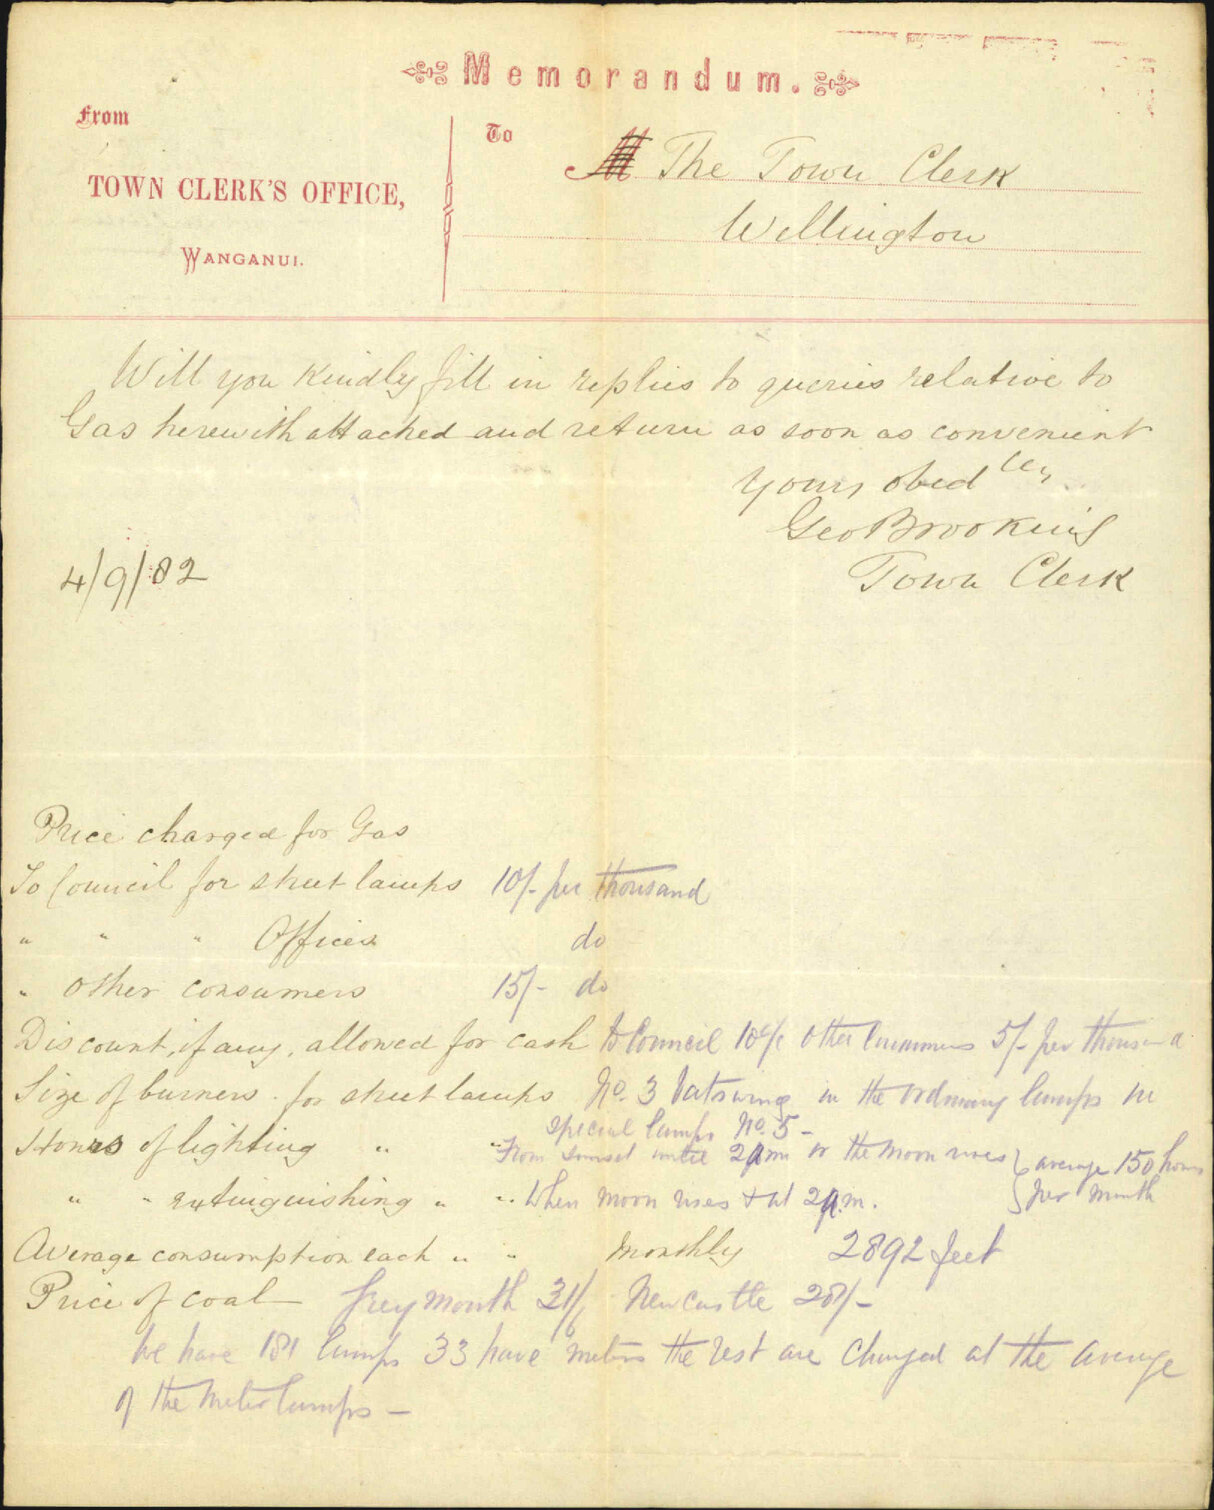 Memorandum.
From
To
M The Town Clerk
TOWN CLERK'S OFFICE,
Wellington
WANGANUI.
Will you kindly fill in replies to queries relative to
Gas herewith attached and return as soon as convenient
Yours obed
Geo Brooking
Town Clerk
4/9/82
Price charged for Gas
To Council for street lamps 10/- per thousand
" " " Offices do
" other consumers 15/- do
Discount, if any, allowed for cash to Council 10% other Consumers 5/- per thousand
Size of burners for street lamps No. 3 batswing in the ordinary lamps in
special lamps No. 5 -
Hours of lighting " " From sunset until 2 am or the moon rises } average 150 hours
" " extinguishing " " When moon rises & at 2 a.m. } per month
Average consumption each " " monthly 2892 feet
Price of coal Greymouth 31/6 Newcastle 28/-
We have 181 lamps 33 have meters the rest are charged at the average
of the meter lamps -